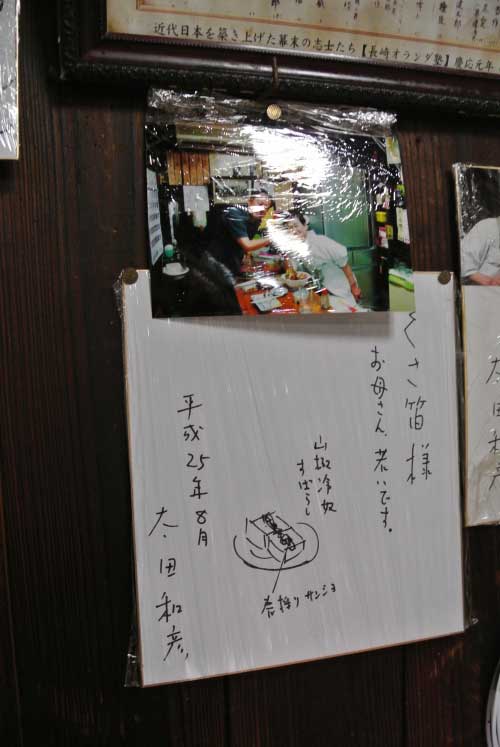 近代日本を築き上げた幕末の志士たち【長崎オランダ塾】慶応元年
くさ笛様
お母さん、若いです。
山椒冷奴
すばらし
春採りサンショ
平成25年8月
太田和彦
太田和彦